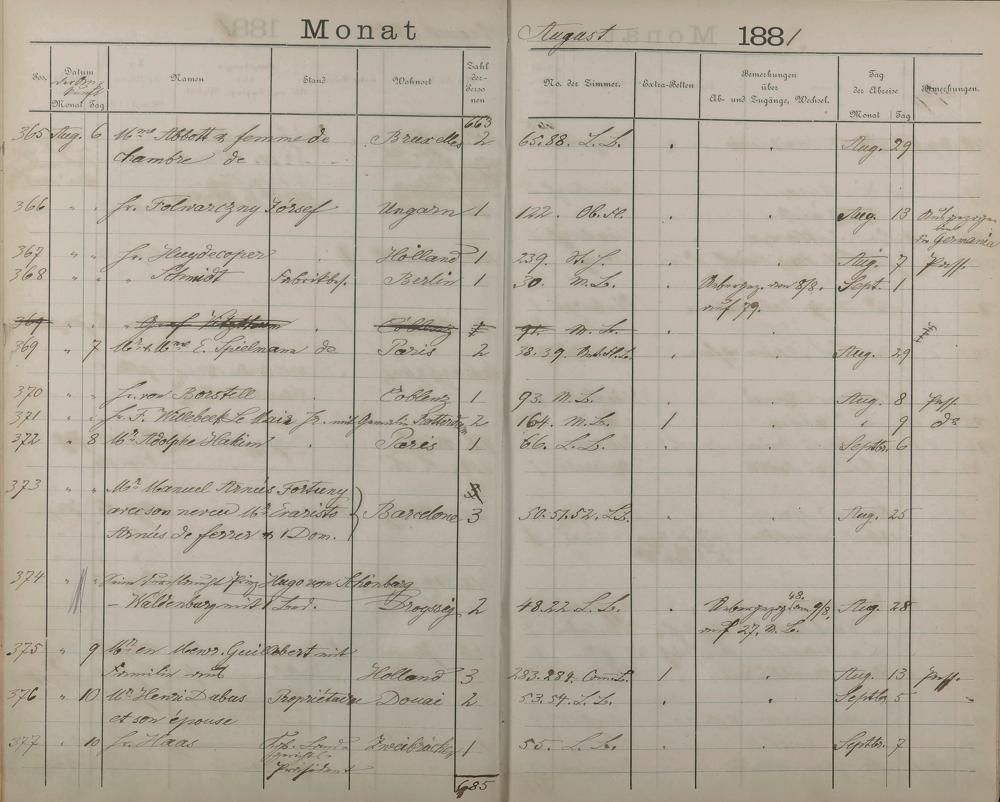 Monat August 1881
Pos. Datum der Ankunft Monat Tag Namen Stand Wohnort Zahl der Personen No. der Zimmer. Extra-Betten Bemerkungen über Ab- und Zugänge, Wechsel. Tag der Abreise Monat Tag Bemerkungen.
663
365 Aug. 6 Mme Abbott & femme de Bruxelles 2 65.88. L.B. Aug. 29
chambre de
366 " " Hr. Folwarczny József Ungarn 1 122. Ob. St. Aug. 13 Ausgezogen
Germania
367 " " Hr. Huydecoper Holland 1 239. Aug. 7 Pass.
368 " " " Schmidt Fabrikbes. Berlin 1 30. M.B. Uebergez. von 8/8. Sept. 1
auf 79.
369 " Graf Coblenz 91. M.B.
369 " 7 Mr & Mme E. Spielmann de Paris 2 38.39. Aug. 29
370 " " Hr. von Borstell Coblenz 1 93. M.B. Aug. 8 Pass.
371 " " Hr. F. Willebeek Le Mair Jr. mit Gemalin Rotterdam 2 164. M.B. 1 " 9 do
372 " 8 Mr Adolphe Hakim Paris 1 66. L.B. Septbr. 6
373 " " Mr Manuel Arnús Fortuny
avec son neveu Mr Evaristo Barcelone 3 50.51.52. L.B. Aug. 25
Arnús de ferrer & 1 Dom.
374 " " Seine Durchlaucht Prinz Hugo von Schönburg
- Waldenburg mit 1 Bed. Droyssig 2 48.22. L.B. Uebergezog. am 9/8. Aug. 28
48.
auf 27. M.B.
375 " 9 Mr en Mevr. Guillebert mit
Familie Holland 3 283.284. 1 Aug. 13 Pass.
376 " 10 Mr Henri Dubus Propriétaire Douai 2 53.54. L.B. Septbr. 5
et son épouse
377 " 10 Hr. Haas Zweibrücken 1 55. L.B. Septbr. 7
Präsident
685